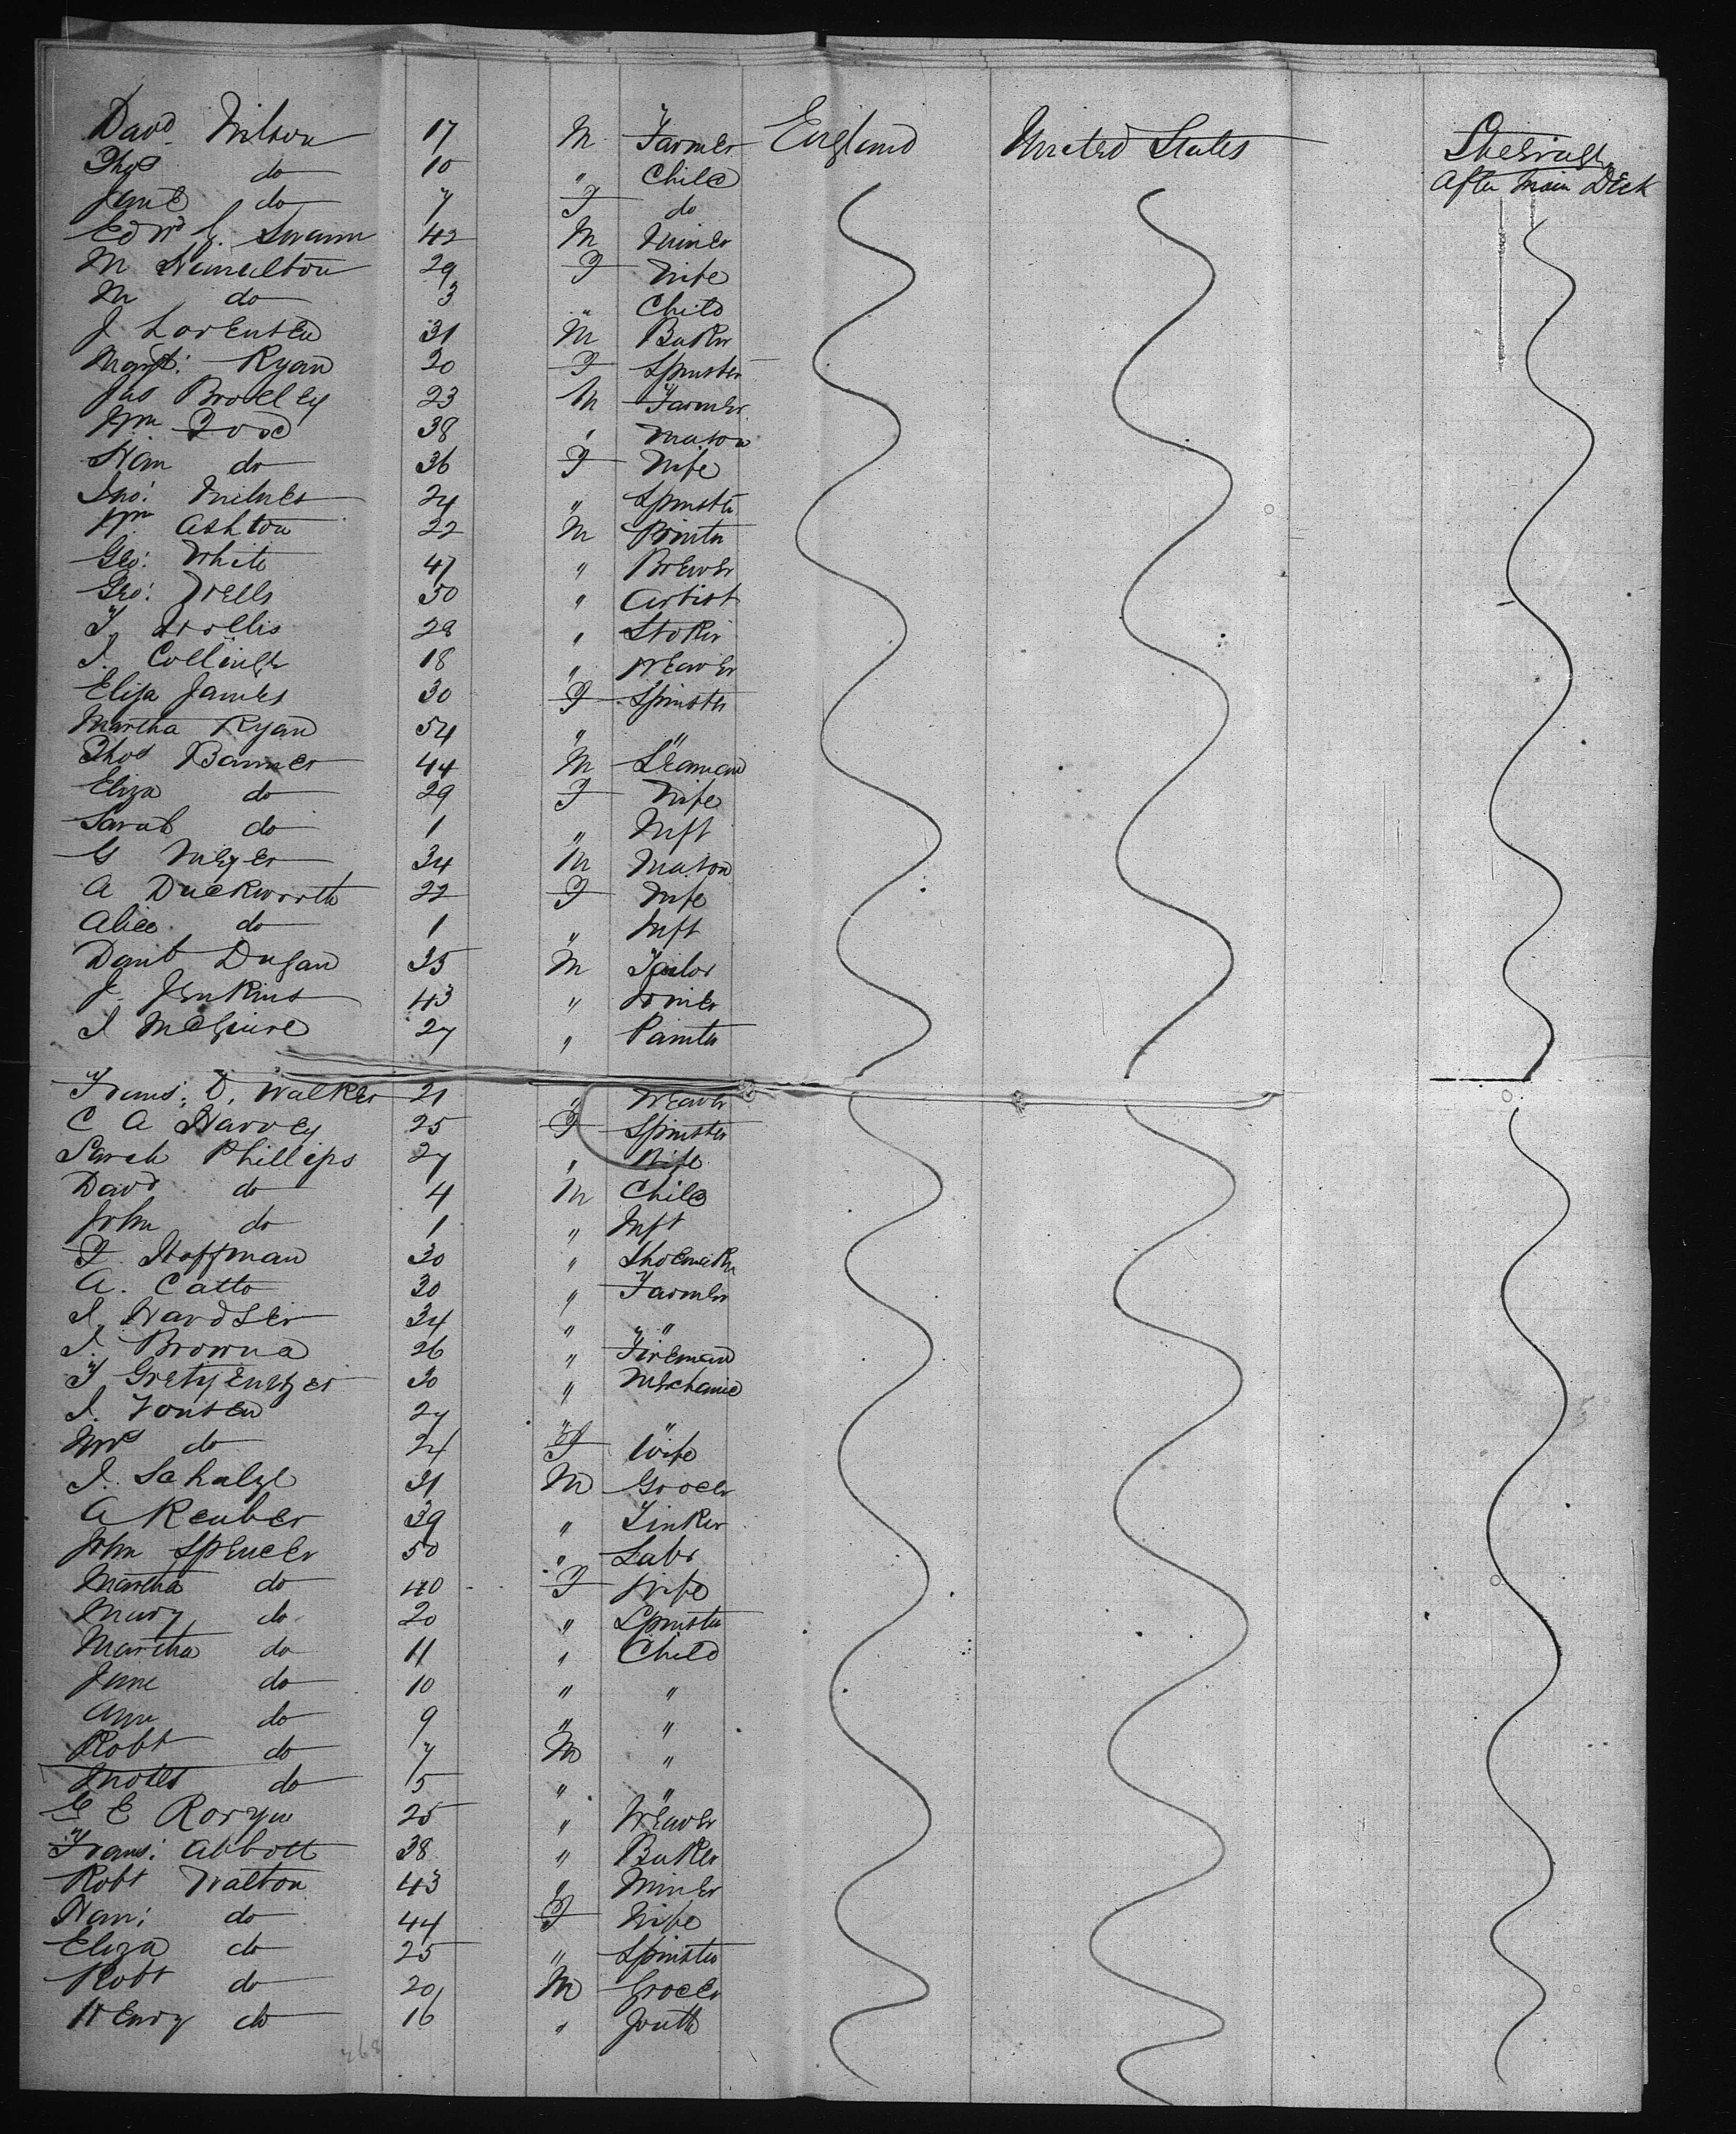 Davd Wilson 17 M Farmer England United States Steerage
Thos do 10 " Child After Main Deck
Jane do 7 F do
Edwd G. Swann 42 M Miner
M Hamilton 29 F Wife
M do 3 " Child
J Lorensen 31 M Baker
Margt: Ryan 20 F Spinster
Jas Brodley 23 M Farmer
Wm Ford 38 " Mason
Han do 36 F Wife
Jno: Milnes 24 " Spinster
Wm Ashton 22 M Printer
Geo: White 47 " Brewer
Geo: Wells 50 " Artist
T. Hollis 28 " Stoker
J. Collinge 18 " Weaver
Eliza James 30 F Spinster
Martha Ryan 54 " "
Thos Barnes 44 M Seaman
Eliza do 29 F Wife
Sarah do 1 " Inft
G Meyer 34 M Mason
A Duckworth 22 F Wife
Alice do 1 " Inft
Danl Dugan 35 M Tailor
J. Jenkins 43 " Joiner
J McGuire 27 " Painter
Frans: D. Walker 21 " Weaver
C A Harvey 25 F Spinster
Sarah Phillips 27 " Wife
Davd do 4 M Child
John do 1 " Inft
F. Hoffman 30 " Shoemaker
A. Catto 30 " Farmer
J. Hardser 34 " "
J. Browna 26 " Fireman
30 " Mechanic
J. Vonsen 27 " "
Mrs do 24 F Wife
J. Schalze 31 M Grocer
A Reuber 39 " Tinker
John Spencer 50 " Labr
Martha do 40 F Wife
Mary do 20 " Spinster
Martha do 11 " Child
Jane do 10 " "
Ann do 9 " "
Robt do 7 M "
Moses do 5 " "
G E Roryw 25 " Weaver
Frans: Abbott 38 " Baker
Robt Walton 43 " Miner
Han: do 44 F Wife
Eliza do 25 " Spinster
Robt do 20 M Grocer
Henry do 16 " Youth